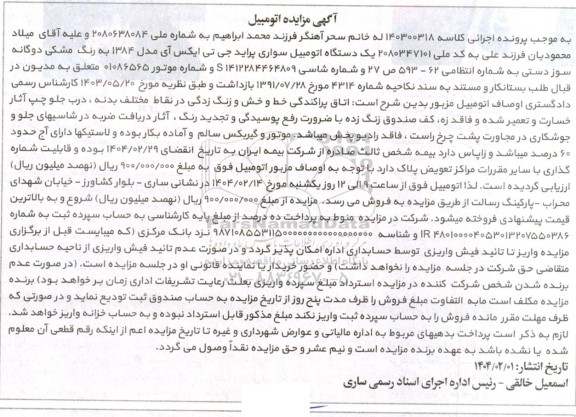 آگهی مزایده اتومبیل
به موجب پرونده اجرائی کلاسه 140300318 له خانم سحر آهنگر فرزند محمد ابراهیم به شماره ملی 2080638084 و علیه آقای میلاد
محمودیان فرزند علی به کد ملی 2080347101 یک دستگاه اتومبیل سواری پراید جی تی ایکس آی مدل 1384 به رنگ مشکی دوگانه
سوز دستی به شماره انتظامی 62 - 593 ص 27 و شماره شاسی S1412284464809 و شماره موتور 01086565 متعلق به مدیون در
قبال طلب بستانکار و مستند به سند نکاحیه شماره 4314 مورخ 1391/07/28 بازداشت و طبق نظریه مورخ 1403/05/20 کارشناس رسمی
دادگستری اوصاف اتومبیل مزبور بدین شرح است: اتاق پراکندگی خط و خش و زنگ زدگی در نقاط مختلف بدنه ، درب جلو چپ آثار
خسارت و تعمیر شده و فاقد زه، کف صندوق زنگ زده با ضرورت رفع پوسیدگی و تجدید رنگ ، آثار دریافت ضربه در شاسیهای جلو و
جوشکاری در مجاورت پشت چرخ راست ، فاقد رادیو پخش میباشد. موتور و گیربکس سالم و آماده بکار بوده و لاستیکها دارای آج حدود
60 درصد میباشد و زاپاس دارد بیمه شخص ثالث صادره از شرکت بیمه ایران به تاریخ انقضای 1404/02/29 بوده و قابلیت شماره
گذاری با سایر مقررات مراکز تعویض پلاک دارد با توجه به اوصاف مزبور اتومبیل فوق به مبلغ 900/000/000 ریال (نهصد میلیون ریال)
ارزیابی گردیده است. لذا اتومبیل فوق از ساعت 9 الی 12 روز یکشنبه مورخ 1404/02/14 در نشانی ساری - بلوار کشاورز - خیابان شهدای
محراب -پارکینگ رسالت از طریق مزایده به فروش می رسد. مزایده از مبلغ 900/000/000 ریال (نهصد میلیون ریال) شروع و به بالاترین
قیمت پیشنهادی فروخته میشود. شرکت در مزایده منوط به پرداخت ده درصد از مبلغ پایه کارشناسی به حساب سپرده ثبت به شماره
نزد بانک مرکزی (که میبایست قبل از برگزاری
مزایده واریز با تائید فیش واریزی توسط حسابداری اداره امکان پذیر گردد و در صورت عدم تائید فیش واریزی از ناحیه حسابداری
متقاضی حق شرکت در جلسه مزایده را نخواهد داشت) و حضور خریدار یا نماینده قانونی او در جلسه مزایده است. (در صورت عدم
برنده شدن شخص شرکت کننده در مزایده استرداد مبلغ سپرده واریزی بعلت رعایت تشریفات اداری زمان بر خواهد بود) برنده
مزایده مکلف است مابه التفاوت مبلغ فروش را ظرف مدت پنج روز از تاریخ مزایده به حساب صندوق ثبت تودیع نماید و در صورتی که
ظرف مهلت مقرر مانده فروش را به حساب سپرده ثبت واریز نکند مبلغ مذکور قابل استرداد نبوده و به حساب خزانه واریز خواهد شد.
لازم به ذکر است پرداخت بدهیهای مربوط به اداره مالیاتی و عوارض شهرداری و غیره تا تاریخ مزایده اعم از اینکه رقم قطعی آن معلوم
شده یا نشده باشد به عهده برنده مزایده است و نیم عشر و حق مزایده نقداً وصول می گردد.
تاریخ انتشار: 1404/02/01
اسمعیل خالقی - رئیس اداره اجرای اسناد رسمی ساری